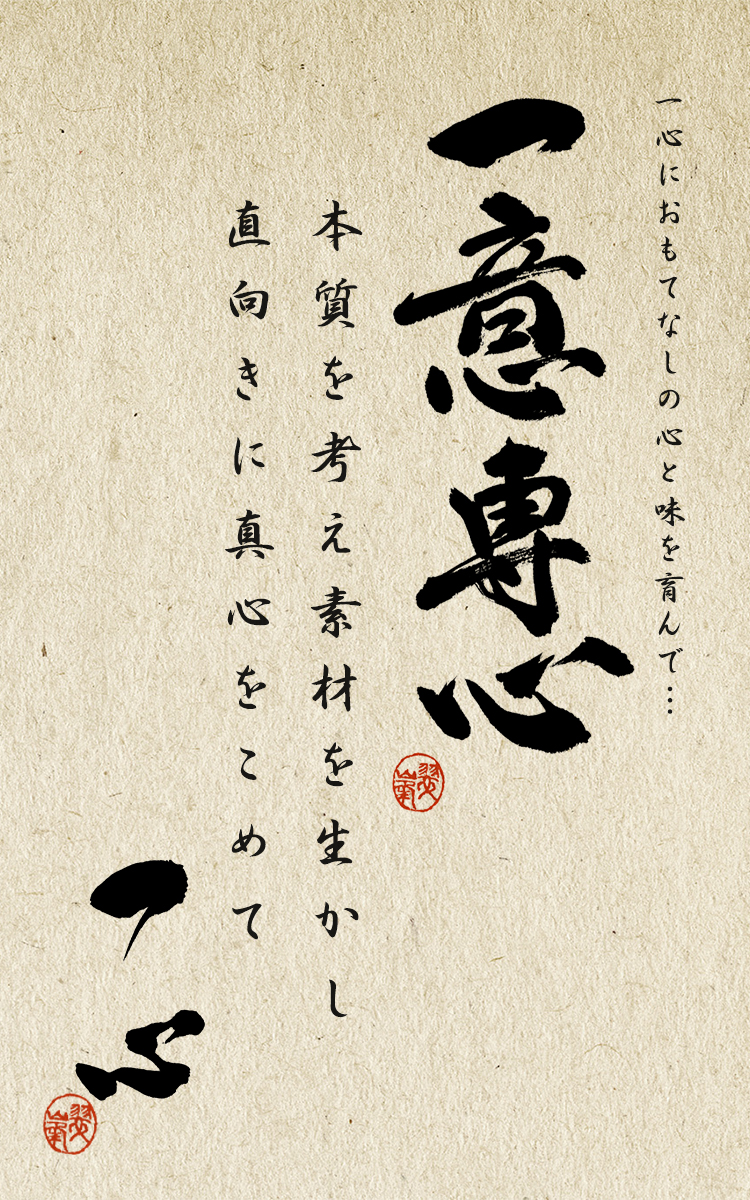 一心におもてなしの心と味を育んで…
一意専心
本質を考え素材を生かし
直向きに真心をこめて
一心